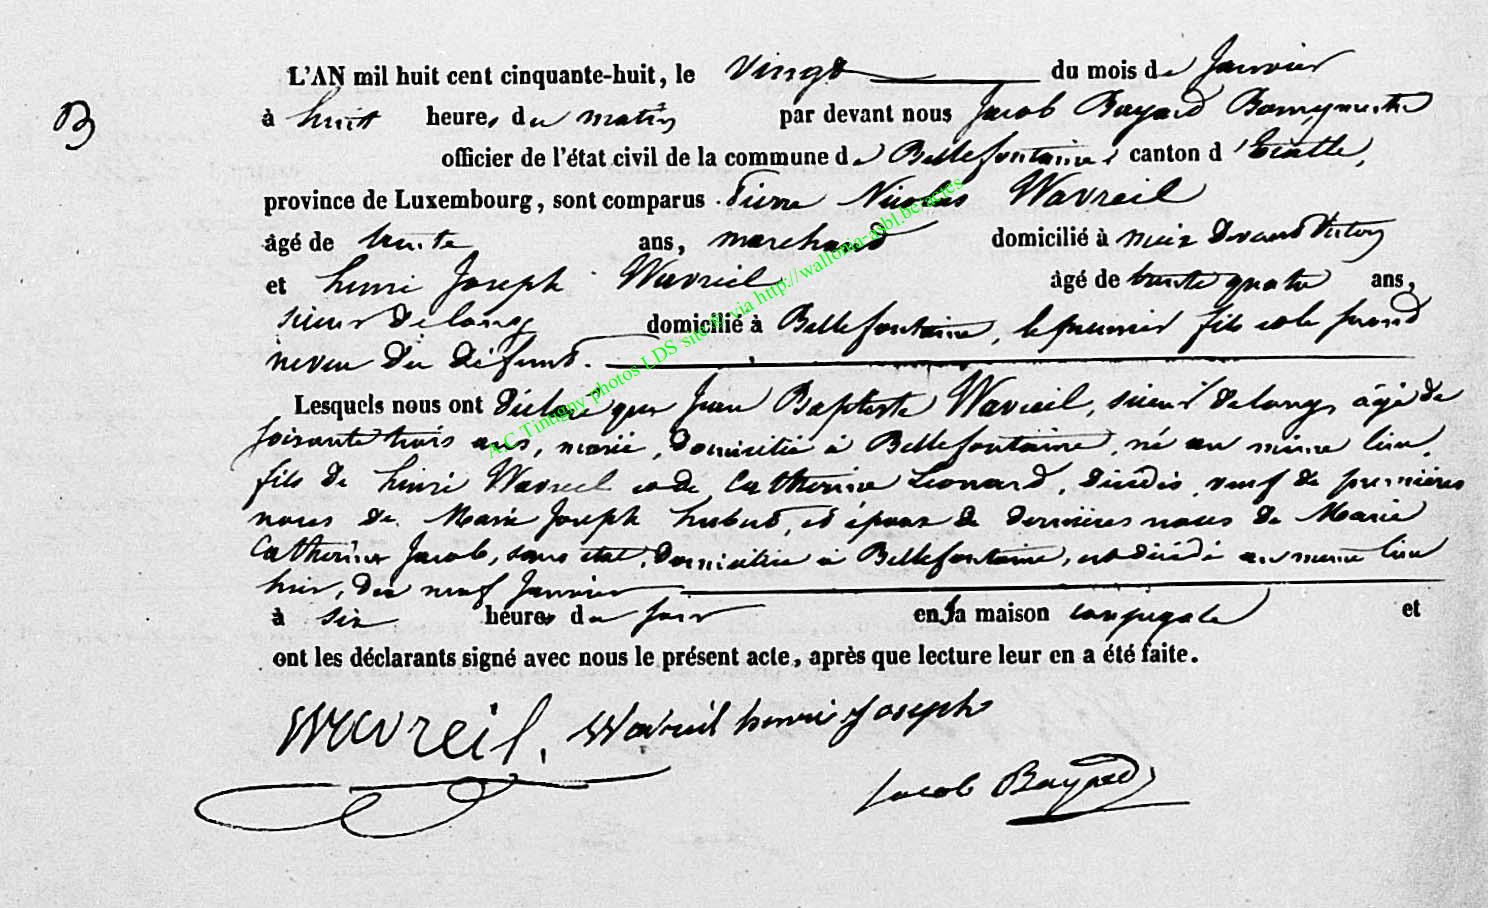 B
L'AN mil huit cent cinquante-huit, le vingt du mois de Janvier
à huit heures du matin par devant nous Jacob Bayard Bourgmestre
officier de l'état civil de la commune de Bellefontaine, canton d'Etalle,
province de Luxembourg, sont comparus Pierre Nicolas Wavreil
âgé de trente ans, marchand domicilié à Meix devant Virton
et henri Joseph Wavreil âgé de trente quatre ans,
sieur de long domicilié à Bellefontaine, le premier fils et le second
neveu du défunt.
Lesquels nous ont déclaré que Jean Baptiste Wavreil, sieur de long, âgé de
soixante trois ans, marié, domicilié à Bellefontaine, né au même lieu,
fils de henri Wavreil et de Catherine Léonard, décédés, veuf de premières
noces de Marie Joseph hubert, et époux de dernières noces de Marie
Catherine Jacob, sans état, domiciliée à Bellefontaine, est décédé au même lieu
hier, dix neuf Janvier
à six heures du soir en la maison conjugale et
ont les déclarants signé avec nous le présent acte, après que lecture leur en a été faite.
Wavreil. Wavreil henri Joseph
Jacob Bayard
A.C Tintigny photos LDS site via http://wallonia-asbl.be/actes